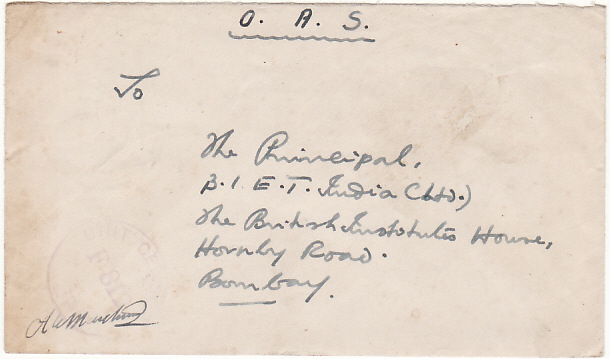 O. A. S.
To
The Principal,
B. I. E. T. India (Ltd.)
The British Institutes House,
Hornby Road.
Bombay.
UNIT CE